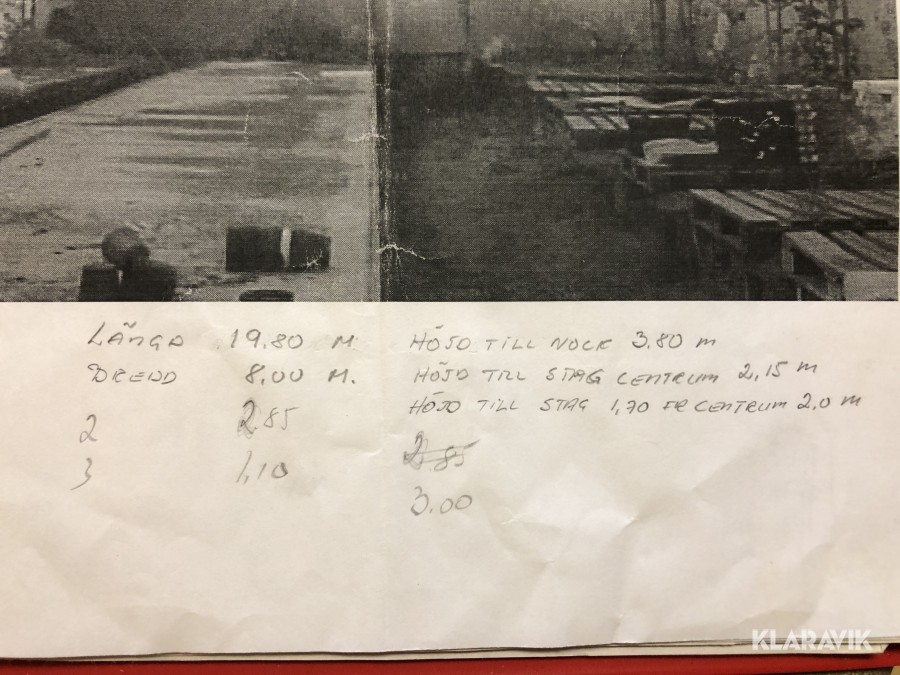 LÄNGD 19.80 M
BREDD 8.00 M.
2 2.85
3 1,10
HÖJD TILL NOCK 3.80 m
HÖJD TILL STAG CENTRUM 2,15 m
HÖJD TILL STAG 1,70 FR CENTRUM 2,0 m
2,85
3.00
KLARAVIK